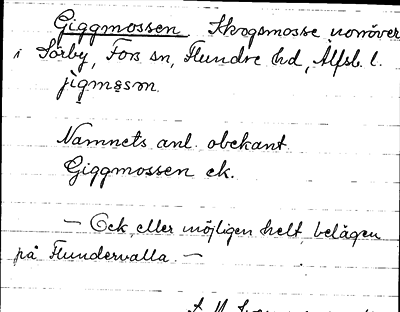 Giggmossen Skogsmosse norröver
i Sörby, Fors sn, Flundre hd, Älfsb. l.
jigmosm.
Namnets anl. obekant.
Giggmossen ek.
— Ock, eller möjligen helt, belägen
på Flundervalla. —